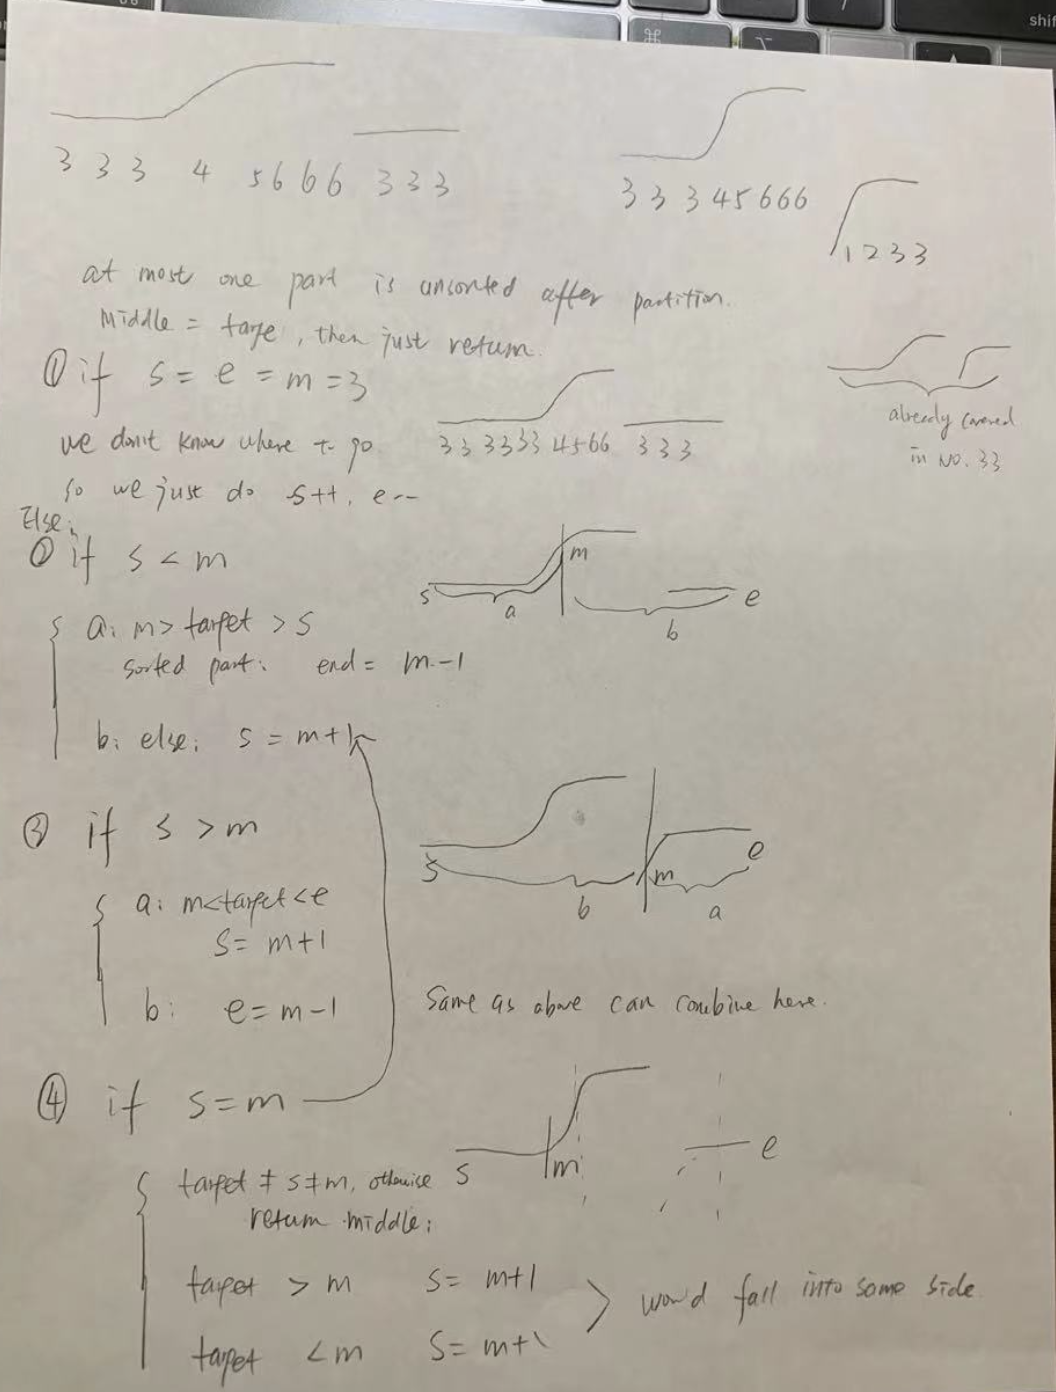 shif
⌘
⌥
3 3 3 4 5 6 6 6 3 3 3
3 3 3 4 5 6 6 6
1 2 3 3
at most one part is unsorted after partition.
Middle = targe, then just return.
① if s = e = m = 3
already covered
in NO. 33
we don't know where to go.
3 3 3 3 3 3 4 5 6 6 3 3 3
so we just do s++, e--
Else:
② if s < m
s m e
a b
a: m > target > s
sorted part: end = m-1
b: else: s = m+1
③ if s > m
s m e
b a
a: m < target < e
s = m+1
b: e = m-1
Same as above can combine here.
④ if s = m
s m e
target ≠ s ≠ m, otherwise
return middle;
target > m s = m+1
would fall into some side
target < m s = m+1